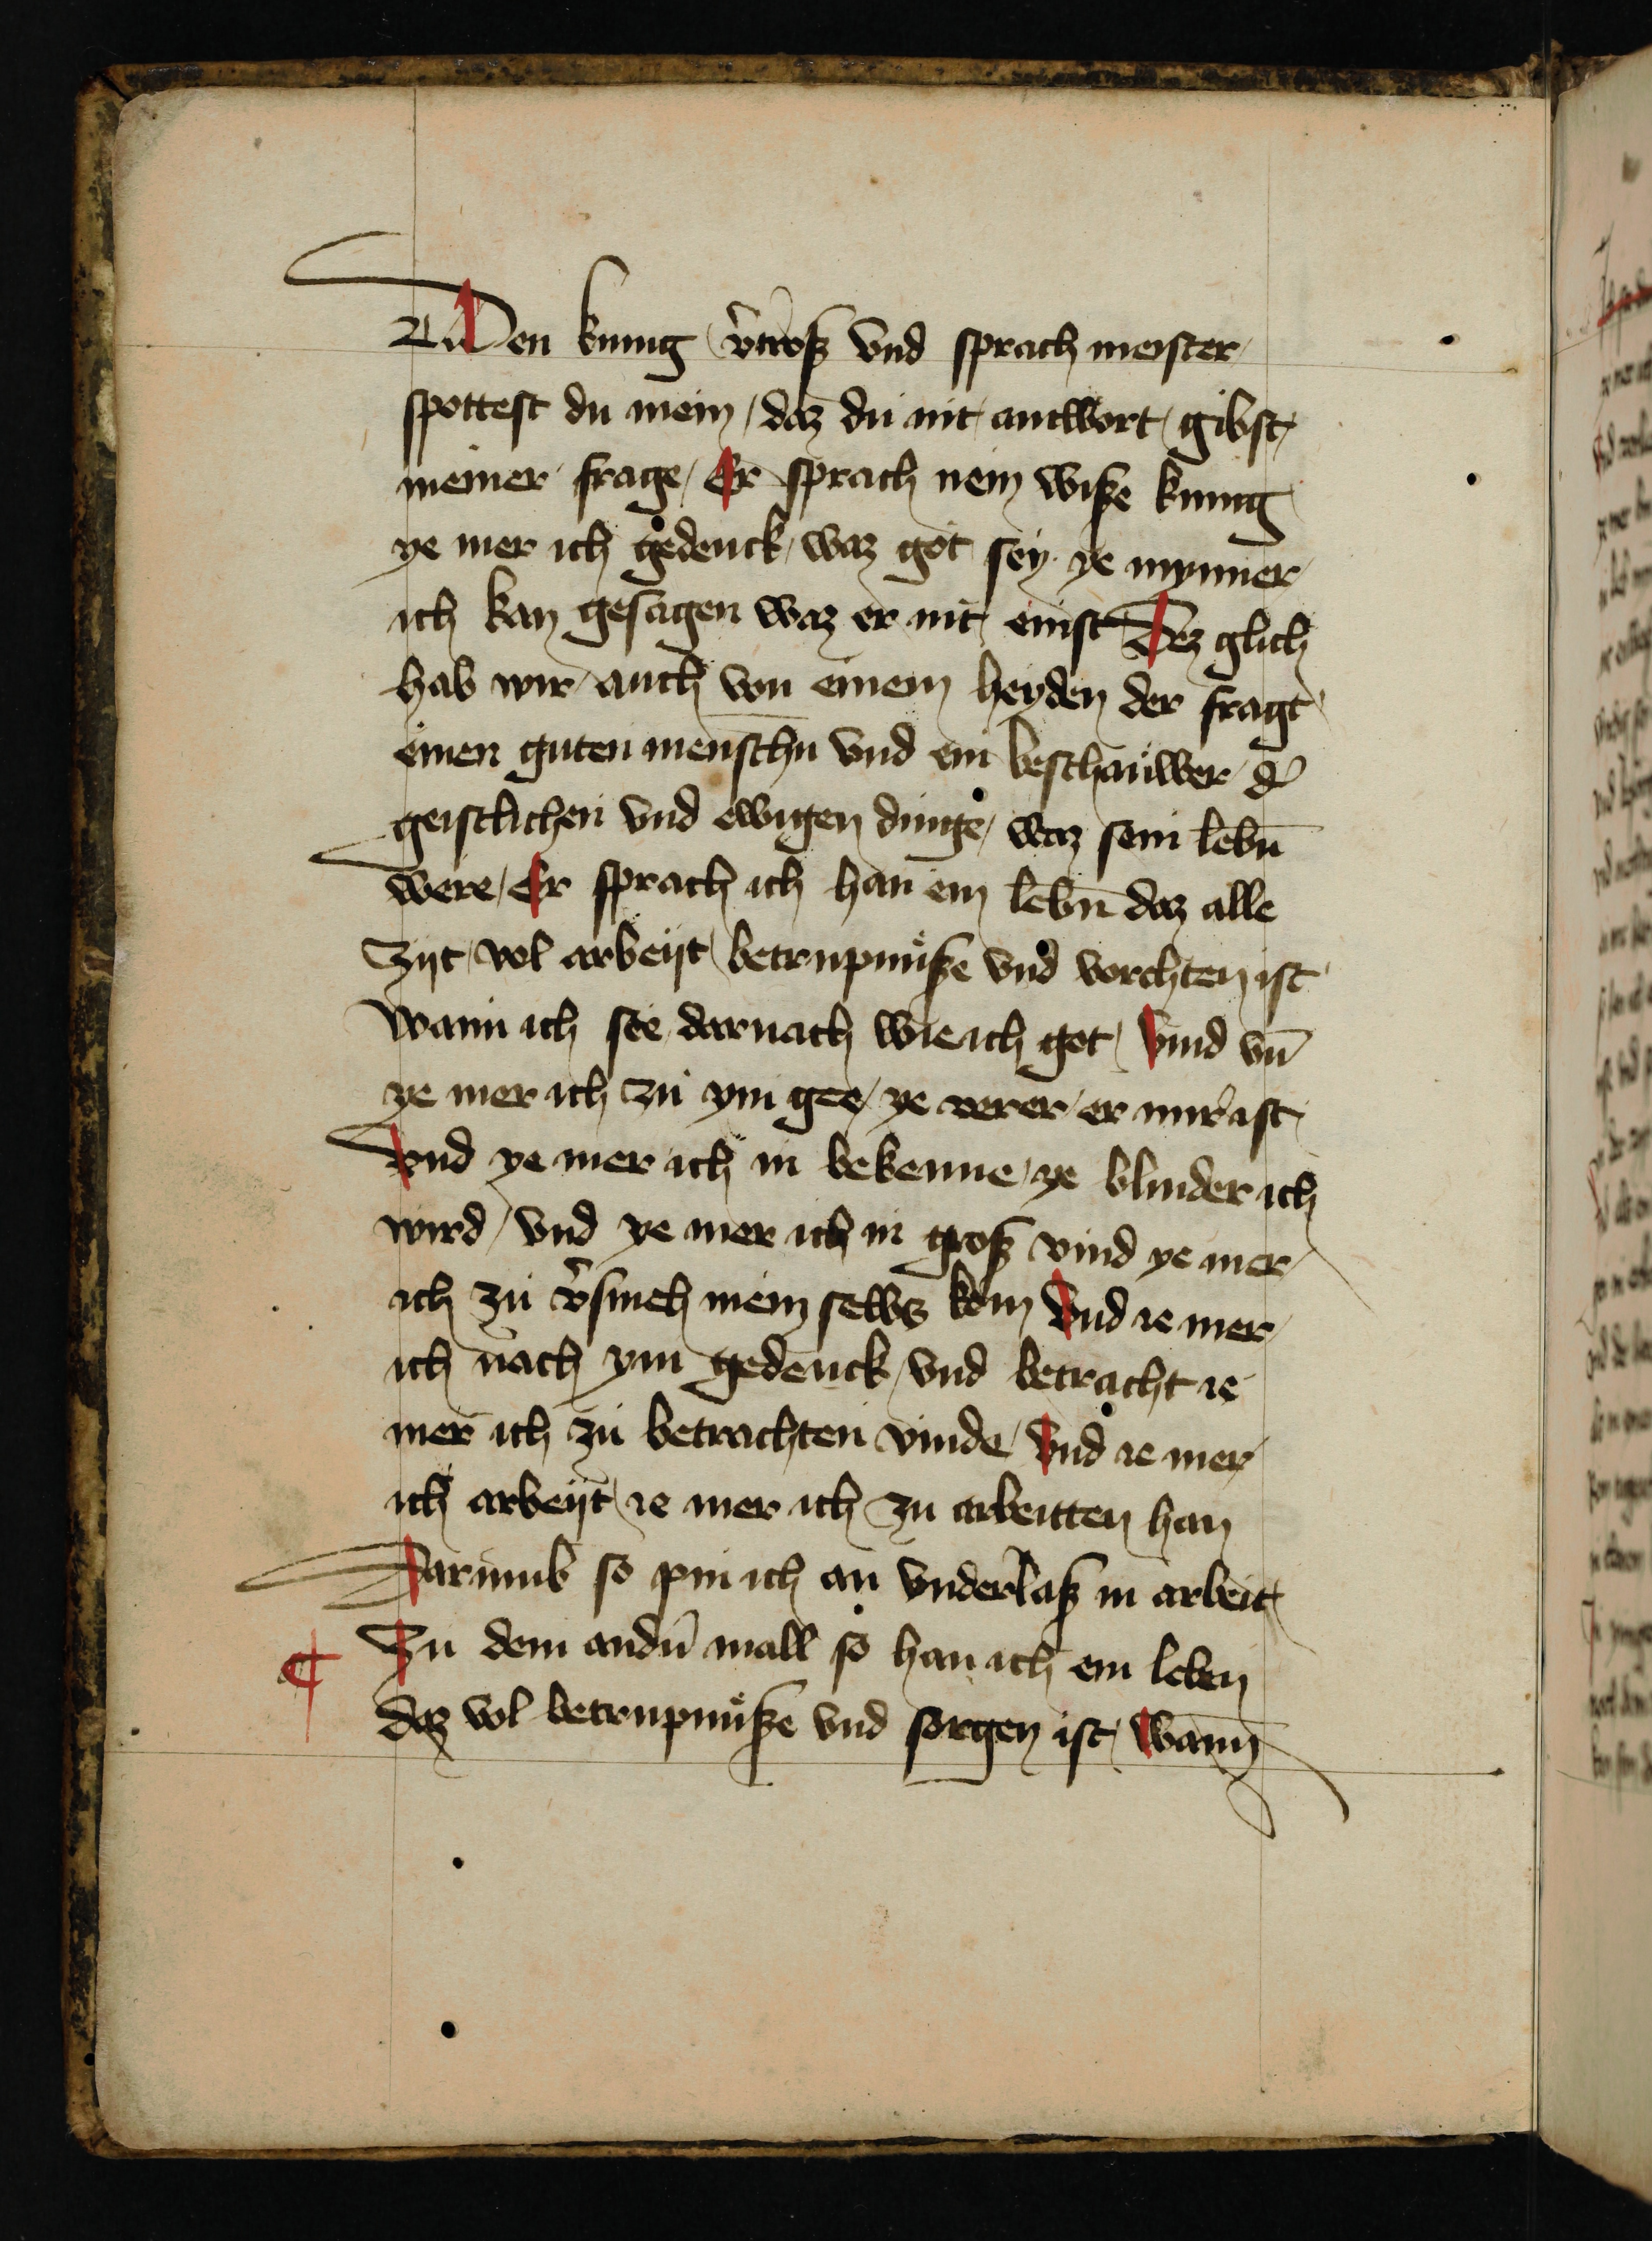 Den kunig v̾troſz vnd sprach meister
spottest du mein / daz du nit antwort gibst
meiner frage / Er sprach nein wiſze kunig
ye mer ich gedenck waz got sey ye mynner
ich kan gesagen waz er nit einst Dez glich
hab wir auch von einem heyden der fragt
einen guten menschn̄ vnd ein beschauwer d̾
geistlichen vnd ewigen dinge / waz sein lebn̄
were / Er sprach ich han ein lebn̄ daz alle
zijt vol arbeijt betrupnuͤſze vnd vorchten ist
Wann ich see darnach wie ich got vind vn̄
ye mer ich zu ym gee / ye verer er mir ist
Vnd ye mer ich in bekenne / ye blinder ich
wird / vnd ye mer ich in groſz vind ye mer
ich zu v̾smeh mein selbs kom Vnd ie mer
ich nach ym gedenck / vnd betracht ie
mer ich zu betrachten vinde / Vnd ie mer
ich arbeijt ie mer ich zu arbeitten han
Darumb so pin ich an vnderlaſz in arbeit
¶ Zu dem andn̾ mall so han ich ein leben
daz vol betrupnuͤſze vnd sorgen ist / Wann